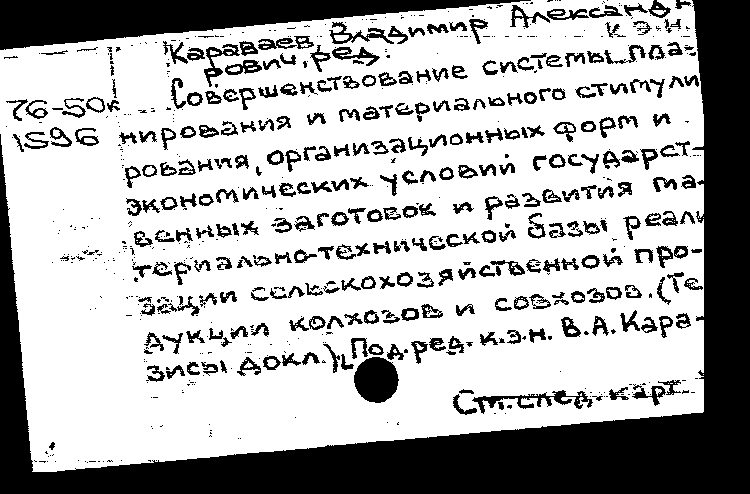 Караваев, Владимир Александ
рович, ред. к.э.н.
76-50к Совершенствование системы пла-
1596 нирования и материального стимули
рования, организационных форм и
экономических условий государст-
венных заготовок и развития ма-
териально-технической базы реали
зации сельскохозяйственной про-
дукции колхозов и совхозов. (Те
зисы докл.). Под.ред. к.э.н. В.А. Кара-
См. след. карт